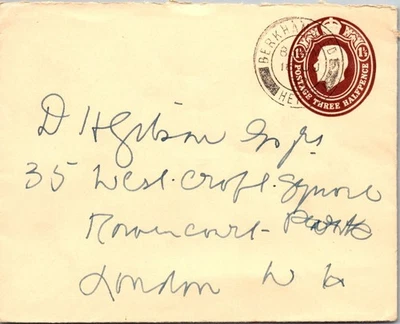 BERKHA
HE
POSTAGE THREE HALFPENCE
1½ 1½
D H Gibson Esqre
35 West-Croft-Square
Ravenscourt- Park
London W 6